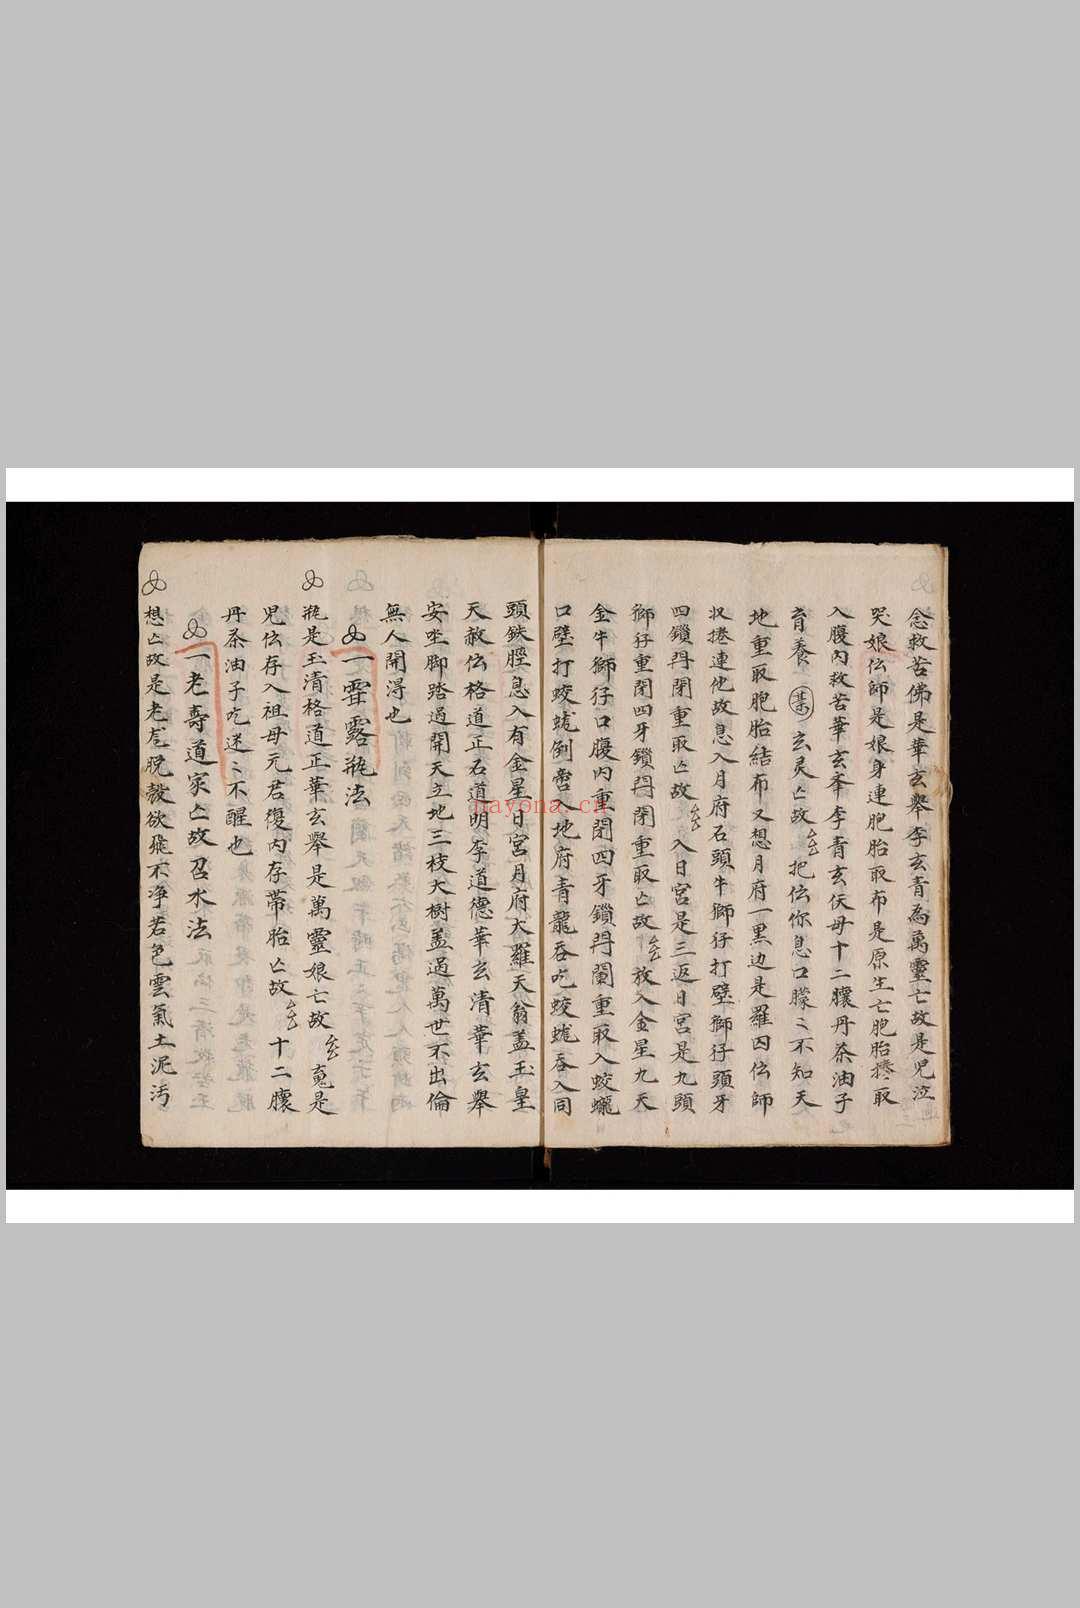 念救苦佛是華玄舉李玄青為萬靈亡故是兒泣
哭娘伝師是娘身連胞胎取布是原生亡胞胎搂取
入腹內救苦華玄夆李青玄仸母十二釀丹茶油子
育養 某 玄灵亡故 把伝你息口朦〻不知天
地重取胞胎結布又想月府一黑边是羅囚伝師
収捲連他故息入月府石頭牛獅仔打壁獅仔頭牙
四鎖閂閉重取亡故 入日宮是三返日宮是九頭
獅仔重閉四牙鎖閂閉重取亡故 放入金星九天
金牛獅仔口腹內重閉四牙鎖閂闌重取入蛟蠟
口壁打蛟蛖例啻入地府青龍吞吃蛟蛖吞入同
頭鉄脛息入有金星日宮月府大羅天翁盖玉皇
天赦伝格道正石道明李道德華玄清華玄舉
安坐脚踏過開天立地三枝大樹盖過萬世不出倫
無人開浔也
一霊露瓶法
瓶是玉清格道正華玄舉是萬靈娘亡故 嵬是
兒伝存入祖母元君復内存带胎亡故 十二釀
丹茶油子吃迷〻不醒也
一老壽道家亡故召水法
想亡故是老君脫殼欲飛不净若色雲氣土泥汚
nayona.cn